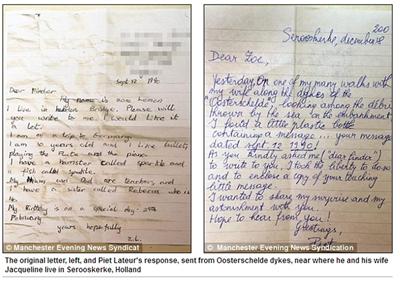 Sept. 12th 1990
Dear Finder
My name is Zoe Lemon
I live in Hebden Bridge. Please will
you write to me I would like it
a lot.
I am on a trip to Germany.
I am 10 years old and I like ballet,
playing the flute and the piano.
I have a hamster called Sparkle and
a fish called Speckle.
My Mummy and Dad are teachers, and
I have a sister called Rebecca who is
My Birthday is on a special day 29th
February
yours hopefully
Z.L.
200
Serooskerke, december
Dear Zoe,
Yesterday, on one of my many walks with
my wife along the dykes of the
"Oosterschelde", looking among the debris
thrown by the sea on the embankment
I found a little plastic bottle
containing a message ... your message
dated sept. 12 1990!
As you kindly asked me ("dear finder")
to write to you, I took the liberty to do so
and to enclose a copy of your touching
little message.
I wanted to share my surprise and my
astonishment with you.
Hope to hear from you!
Greetings,
Piet
© Manchester Evening News Syndicat
© Manchester Evening News Syndication
The original letter, left, and Piet Lateur's response, sent from Oosterschelde dykes, near where he and his wife
Jacqueline live in Serooskerke, Holland